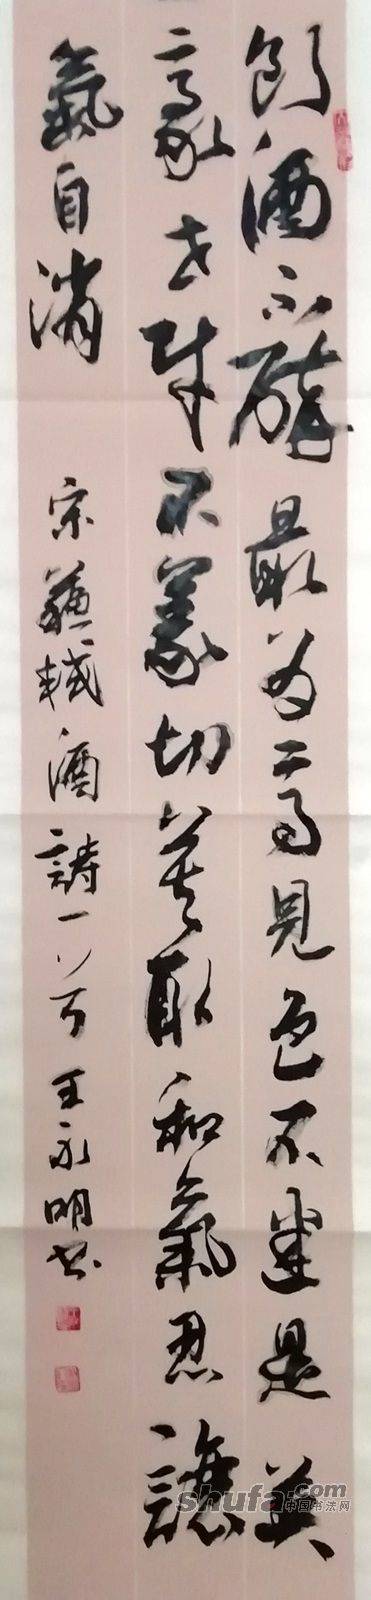 飲酒不醉最为高見色不迷是英
豪世财不義切莫取和氣忍讓
氣自消
宋蘇軾酒詩一首王永明书
shufa.com
中国书法网